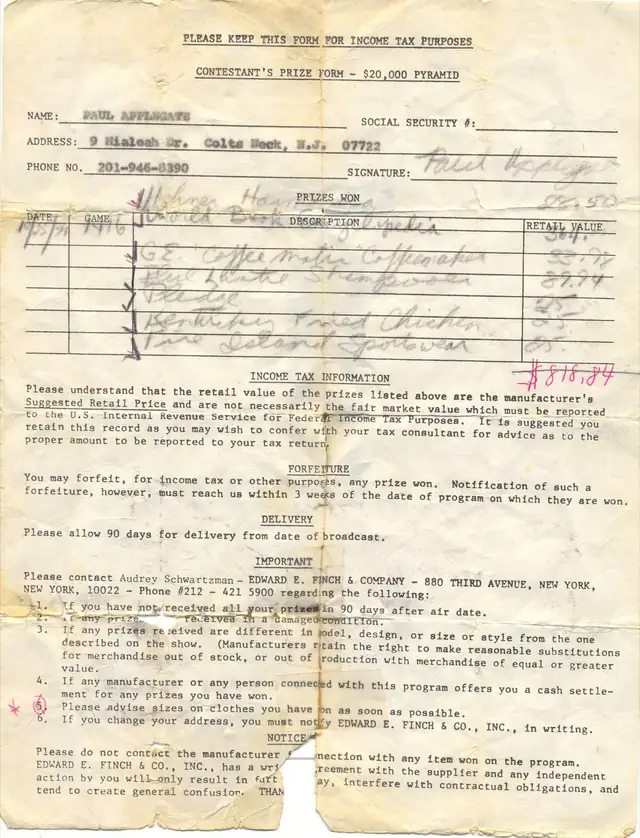 PLEASE KEEP THIS FORM FOR INCOME TAX PURPOSES
CONTESTANT'S PRIZE FORM - $20,000 PYRAMID
NAME: PAUL APPLEGATE SOCIAL SECURITY #:
ADDRESS: 9 Hialeah Dr. Colts Neck, N.J. 07722
PHONE NO. 201-946-8390 SIGNATURE: Paul
PRIZES WON
DATE GAME DESCRIPTION RETAIL VALUE
World Book
G.E. Coffeematic Coffeemaker
Pledge 25
Kentucky Fried Chicken 25
Island Sportswear 25
$818.84
INCOME TAX INFORMATION
Please understand that the retail value of the prizes listed above are the manufacturer's
Suggested Retail Price and are not necessarily the fair market value which must be reported
to the U.S. Internal Revenue Service for Federal Income Tax Purposes. It is suggested you
retain this record as you may wish to confer with your tax consultant for advice as to the
proper amount to be reported to your tax return.
FORFEITURE
You may forfeit, for income tax or other purposes, any prize won. Notification of such a
forfeiture, however, must reach us within 3 weeks of the date of program on which they are won.
DELIVERY
Please allow 90 days for delivery from date of broadcast.
IMPORTANT
Please contact Audrey Schwartzman - EDWARD E. FINCH & COMPANY - 880 THIRD AVENUE, NEW YORK,
NEW YORK, 10022 - Phone #212 - 421 5900 regarding the following:
1. If you have not received all your prizes in 90 days after air date.
2. If any prize received in a damaged condition.
3. If any prizes received are different in model, design, or size or style from the one
described on the show. (Manufacturers retain the right to make reasonable substitutions
for merchandise out of stock, or out of production with merchandise of equal or greater
value.
4. If any manufacturer or any person connected with this program offers you a cash settle-
ment for any prizes you have won.
* 5. Please advise sizes on clothes you have won as soon as possible.
6. If you change your address, you must notify EDWARD E. FINCH & CO., INC., in writing.
NOTICE
Please do not contact the manufacturer connection with any item won on the program.
EDWARD E. FINCH & CO., INC., has a agreement with the supplier and any independent
action by you will only result in interfere with contractual obligations, and
tend to create general confusion.